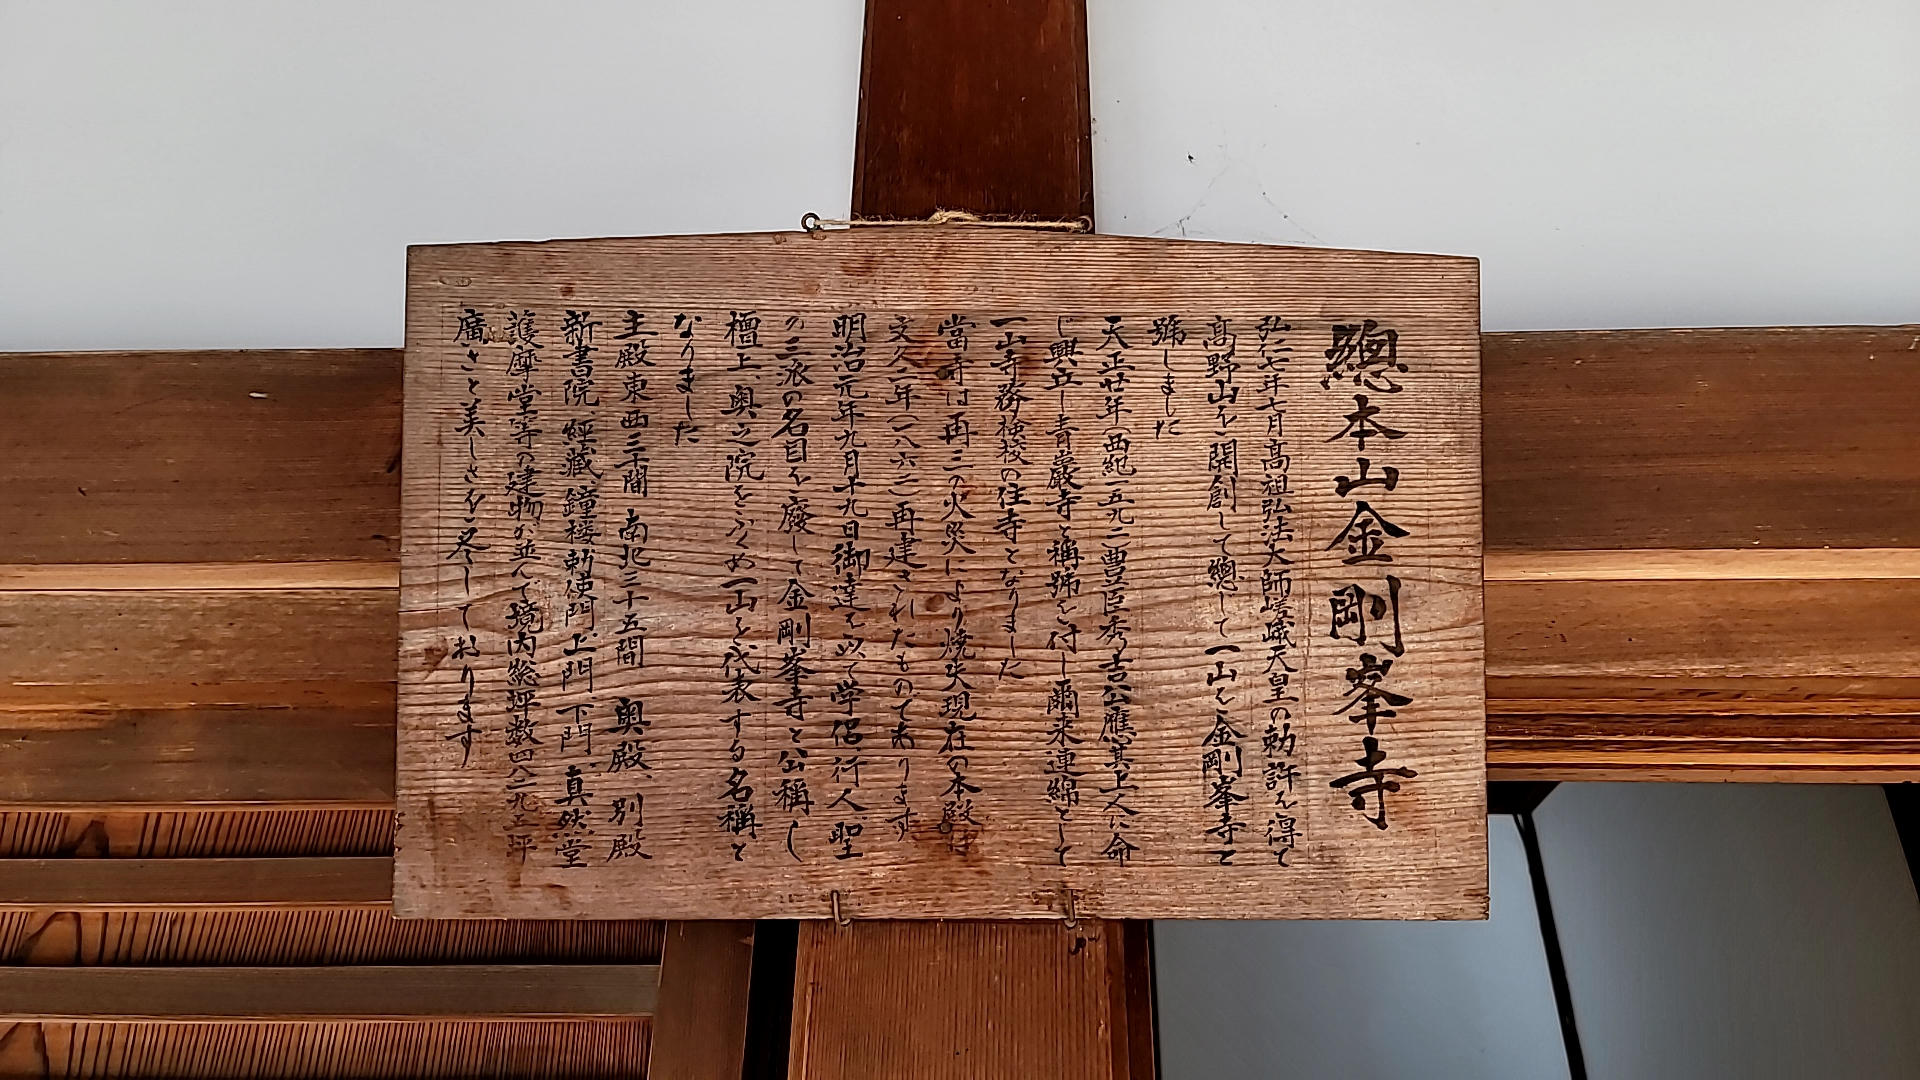 總本山金剛峯寺
弘仁七年七月高祖弘法大師嵯峨天皇の勅許を得て
高野山を開創して總して一山を金剛峯寺と
號しました
天正廿年(西紀一五九二)豊臣秀吉公應其上人に命
じ興立し青巖寺と稱號を付し爾来連綿として
一山寺務検校の住寺となりました
當寺は再三の火災により焼失現在の本殿は
文久二年(一八六二)再建されたものであります
明治元年九月十九日御達を以て学侶、行人、聖
の三派の名目を廢して金剛峯寺と公稱し
檀上、奥之院をふくめ一山を代表する名稱と
なりました
主殿東西三十間 南北三十五間 奥殿、別殿
新書院、経蔵、鐘楼、勅使門、上門、下門、真然堂
護摩堂等の建物が並んで境内総坪数四八二九三坪
廣さと美しさを尽しております